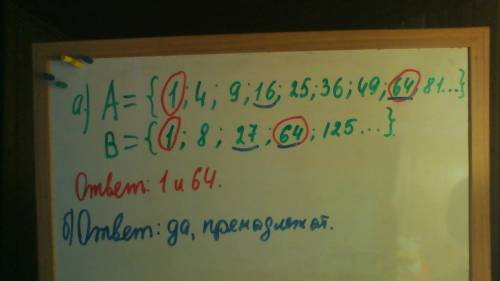 а) A = {1; 4; 9; 16; 25; 36; 49; 64; 81...}
B = {1; 8; 27; 64; 125...}
Ответ: 1 и 64.
б) Ответ: да, пренадлежат.